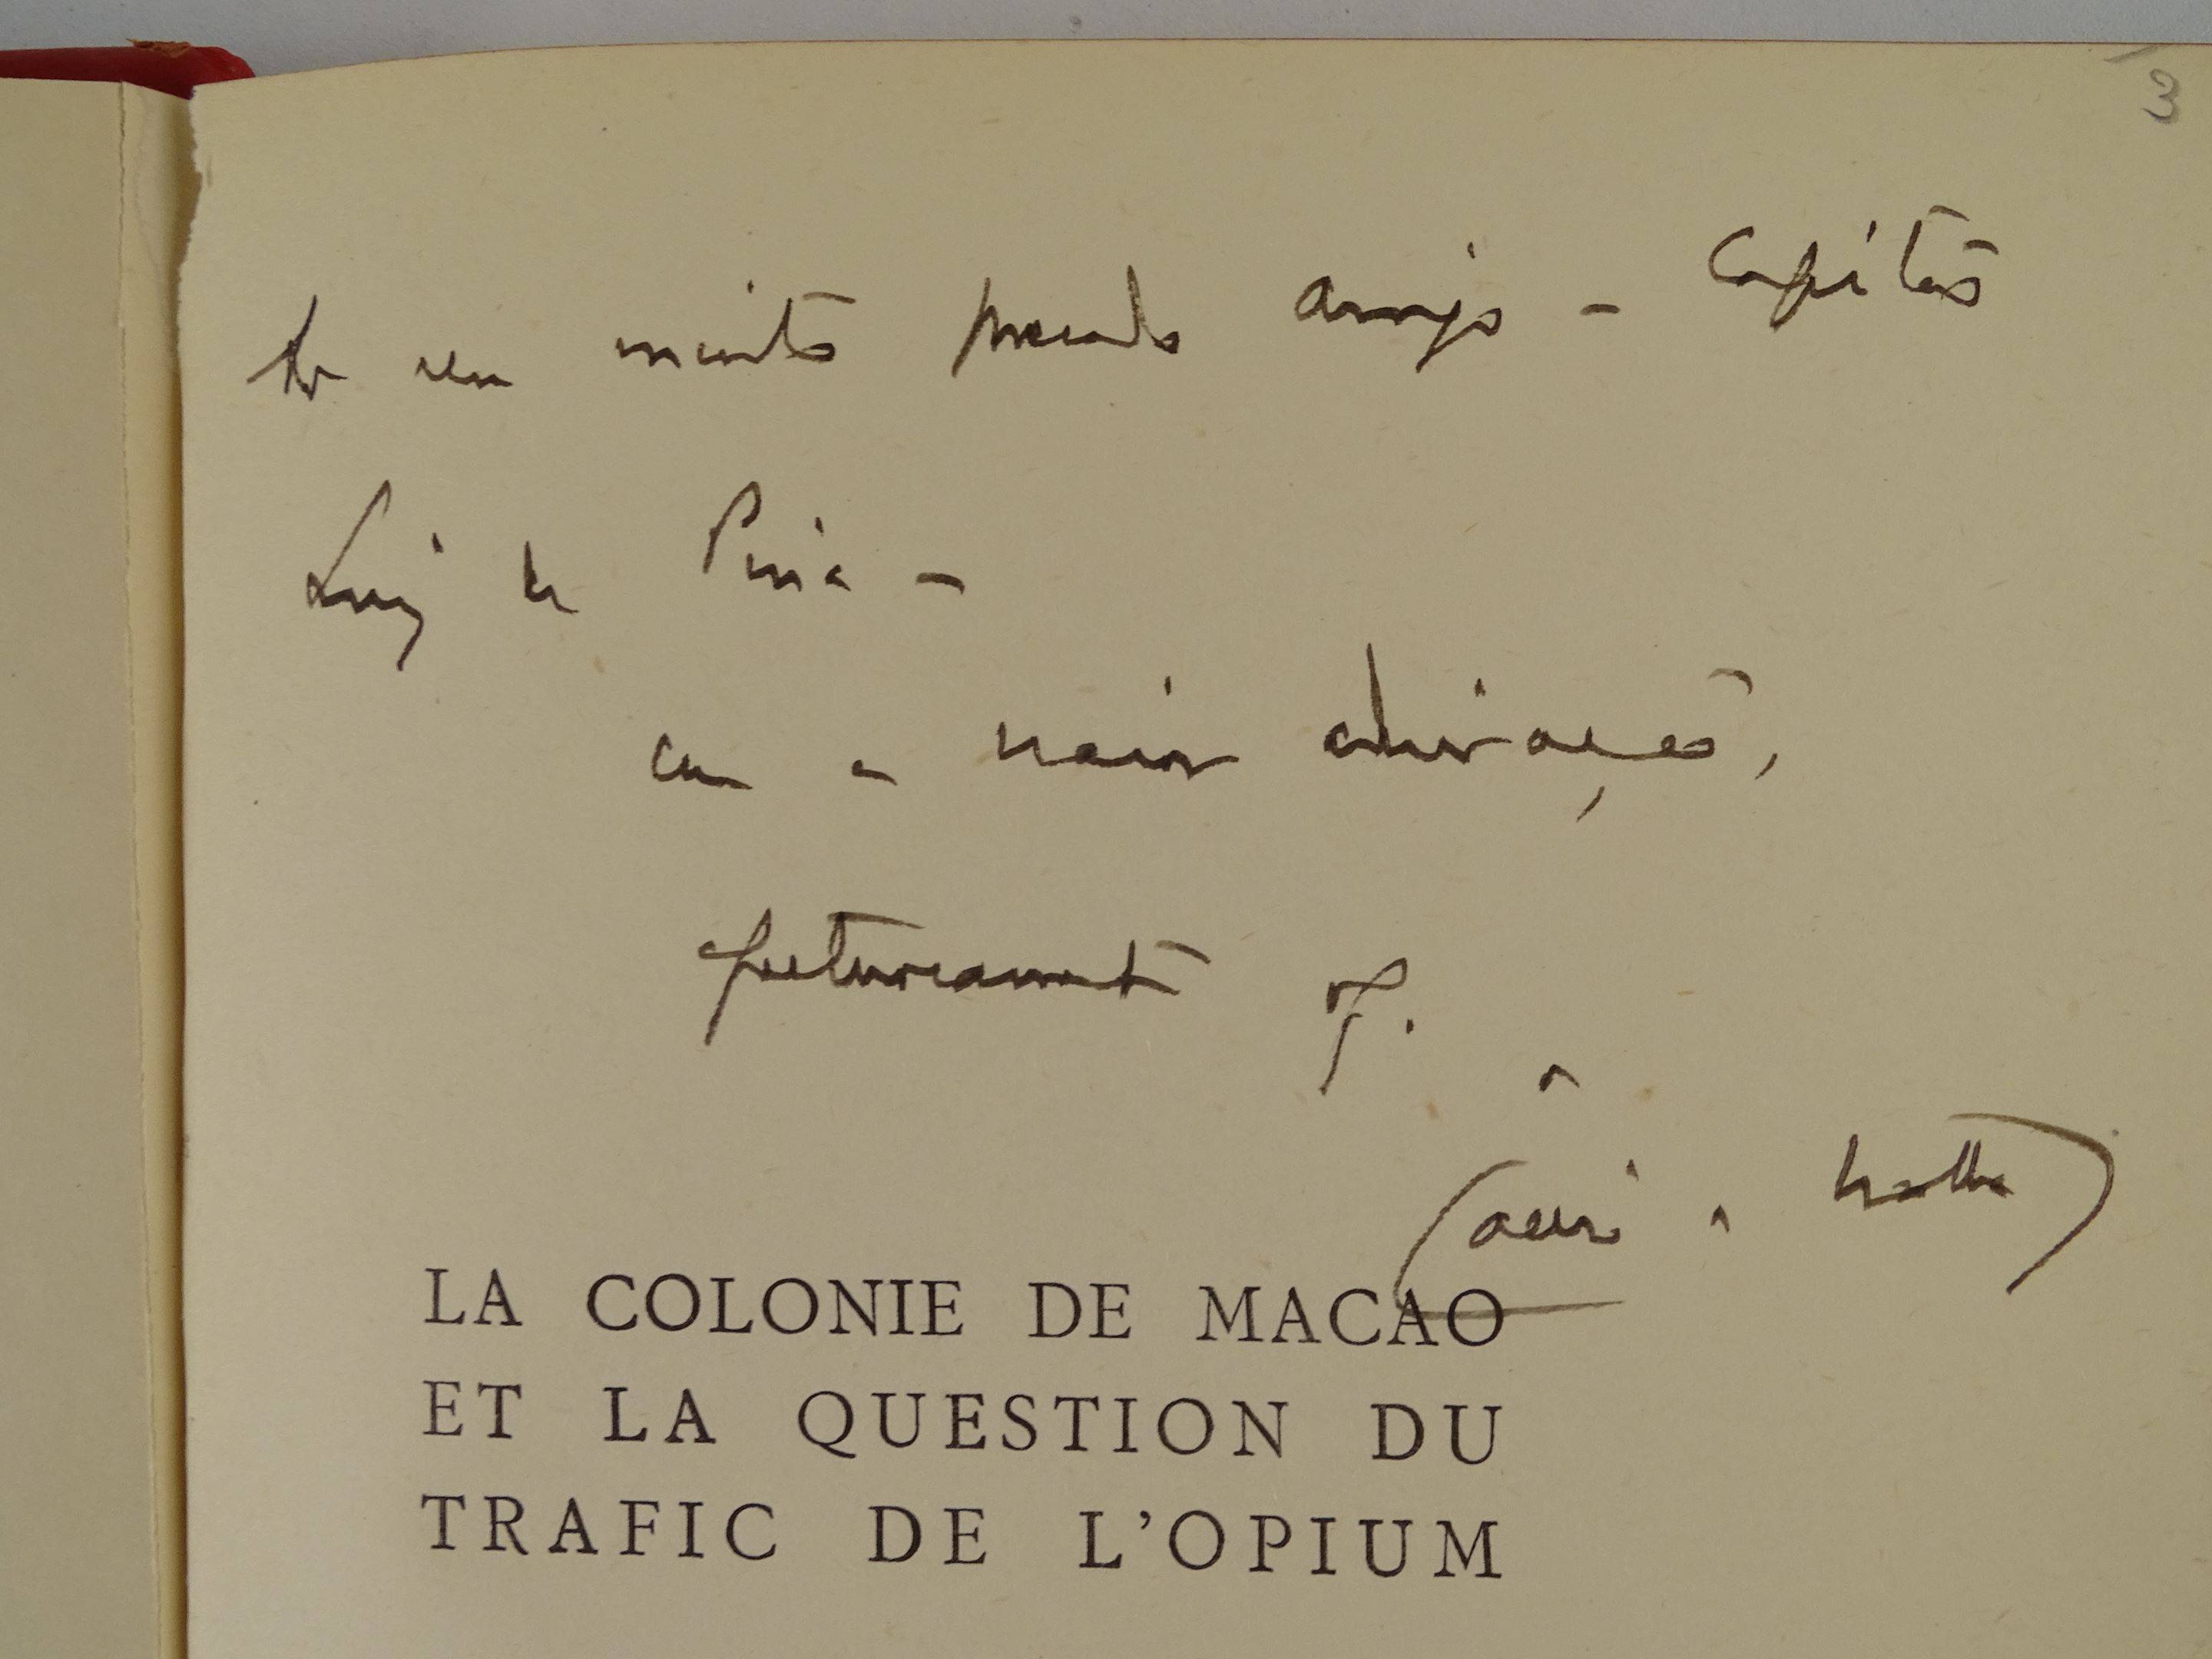 3
Ao seu muito prezado amigo - Capitão
Luiz de Pina -
com a maior admiração,
affectuosamente of.
o
LA COLONIE DE MACAO
ET LA QUESTION DU
TRAFIC DE L'OPIUM